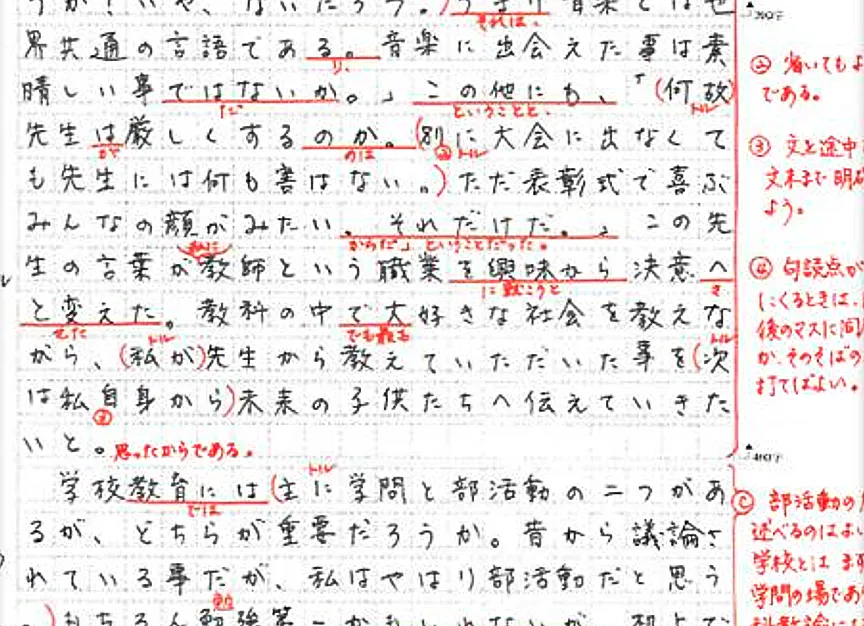 界共通の言語である。音楽に出会えた事は素
晴しい事ではないか。」この他にも、「(何故)
先生は厳しくするのか。(別に大会に出なくて
も先生には何も害はない。)ただ表彰式で喜ぶ
みんなの顔がみたい。それだけだ。」この先
生の言葉が教師という職業を興味から決意へ
と変えた。教科の中で大好きな社会を教えな
がら、(私が)先生から教えていただいた事を(次
は私自身から)未来の子供たちへ伝えていきた
いと。思ったからである。
学校教育には(主に学問と部活動の二つがあ
るが、どちらが重要だろうか。昔から議論さ
れている事だが、私はやはり部活動だと思う
それは、
り、
だ
ということと、
トル
が
のは
② トル
からだ」ということだった。
私に
に就こうと
さ
せた
でも最も
トル
トル
③
トル
では
勉
② 省いてもよ
である。
③ 文を途中
文末まで明確
よう。
④ 句読点が
にくるときは、
後のマスに同
か、そのそばの
打てばよい。
Ⓒ 部活動の
述べるのはよい
学校とは
学問の場であ